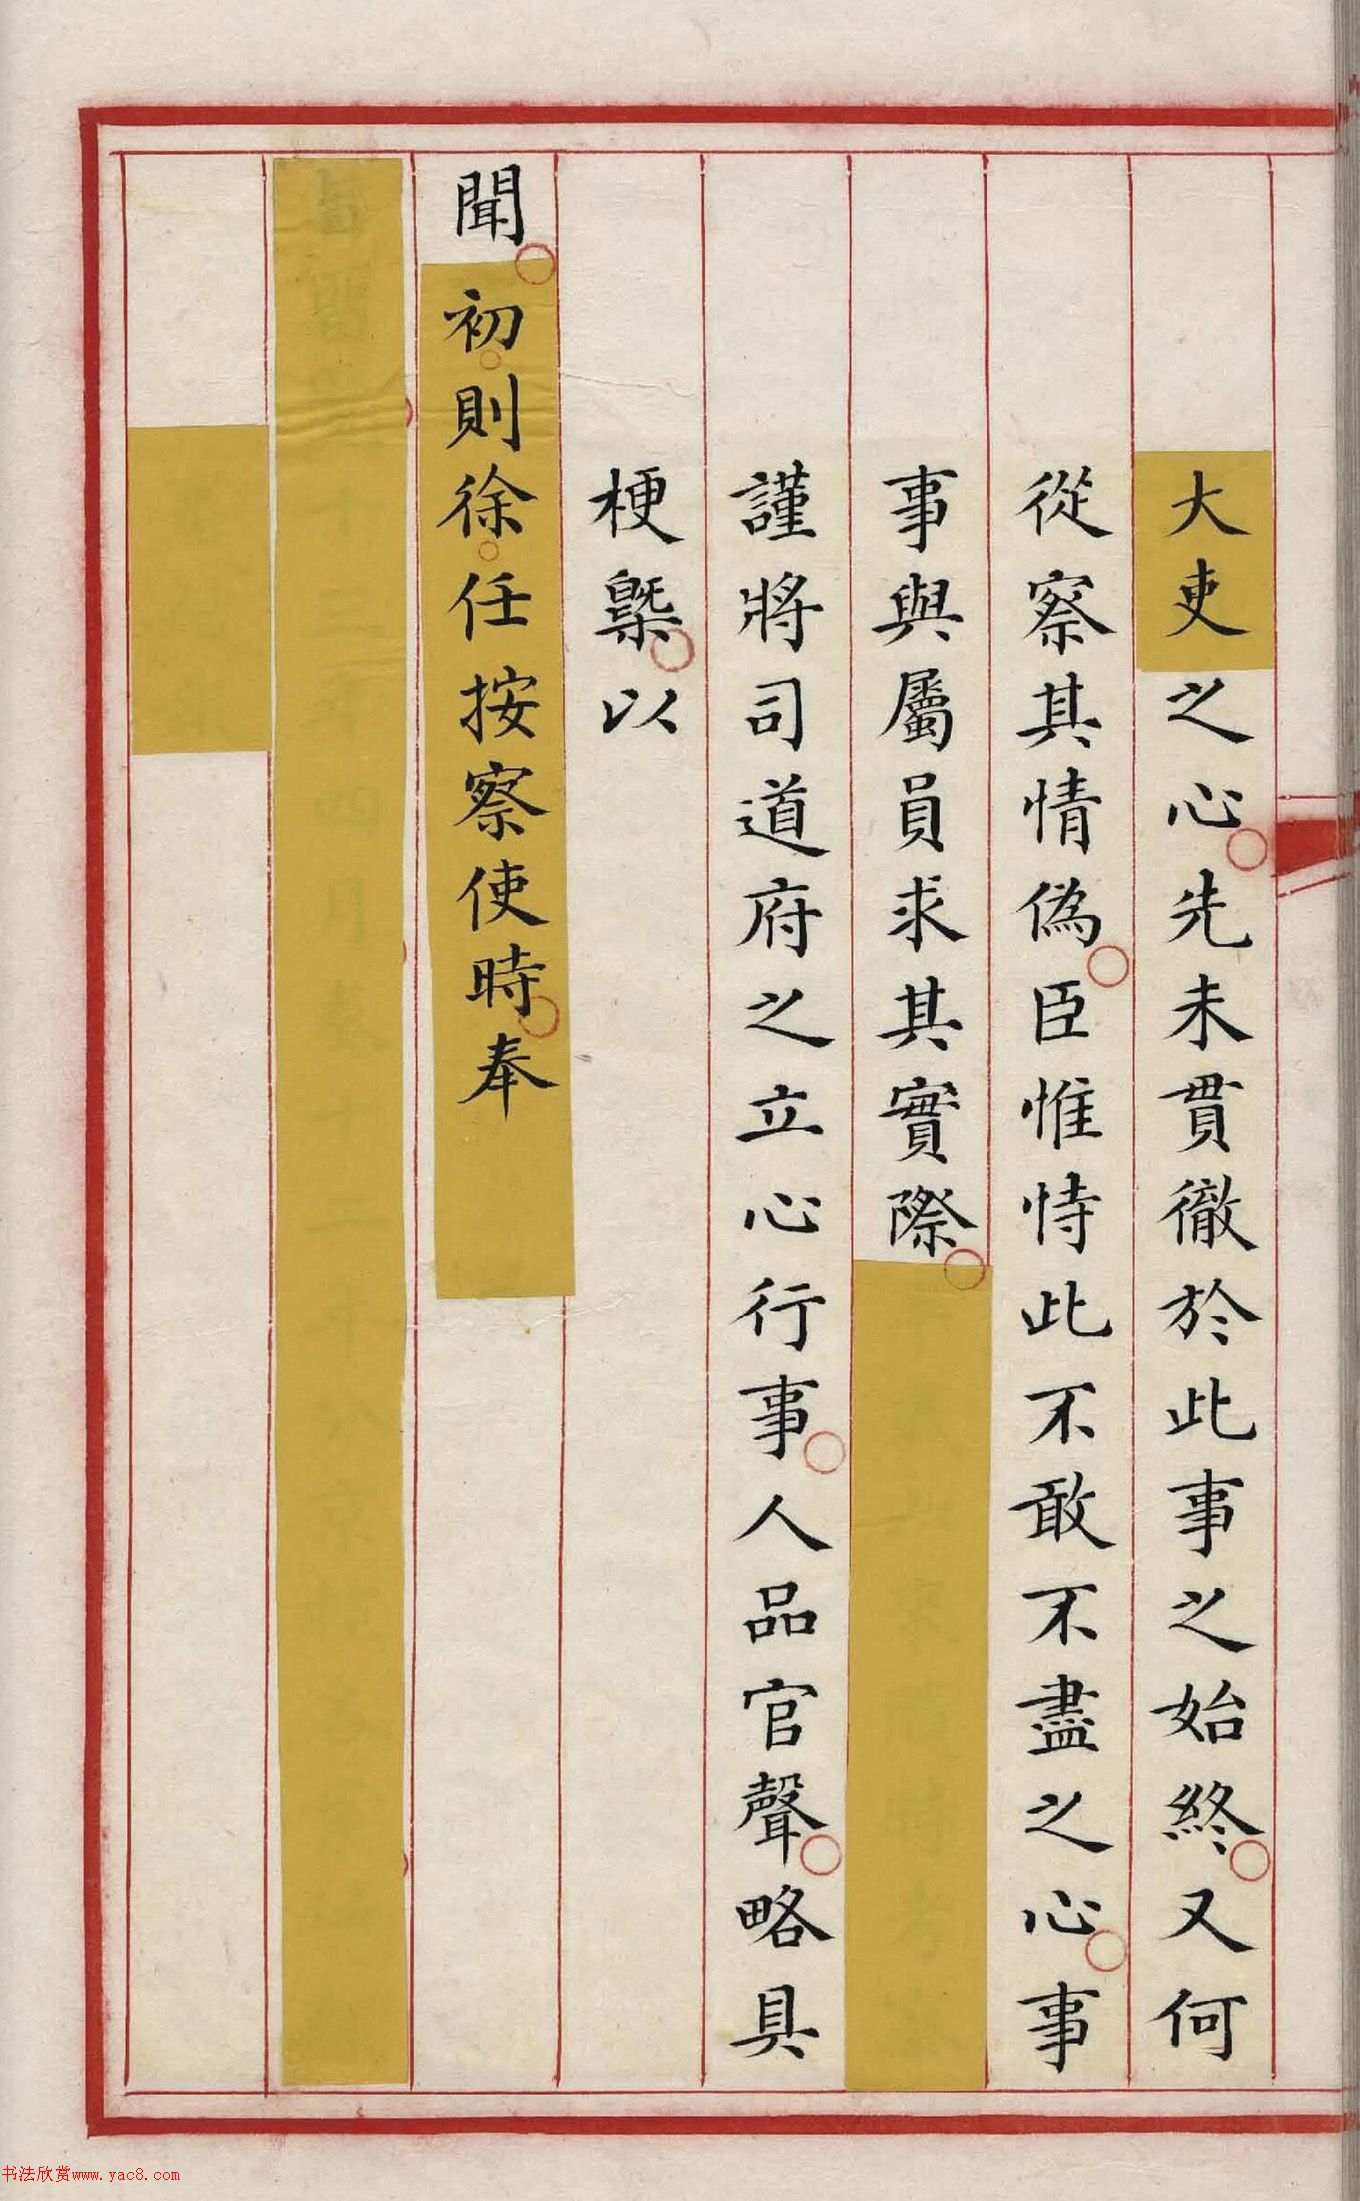 大吏之心先未貫徹於此事之始終又何
從察其情偽臣惟恃此不敢不盡之心事
事與屬員求其實際
謹將司道府之立心行事人品官聲略具
梗槩以
聞初則徐任按察使時奉
书法欣赏www.yac8.com